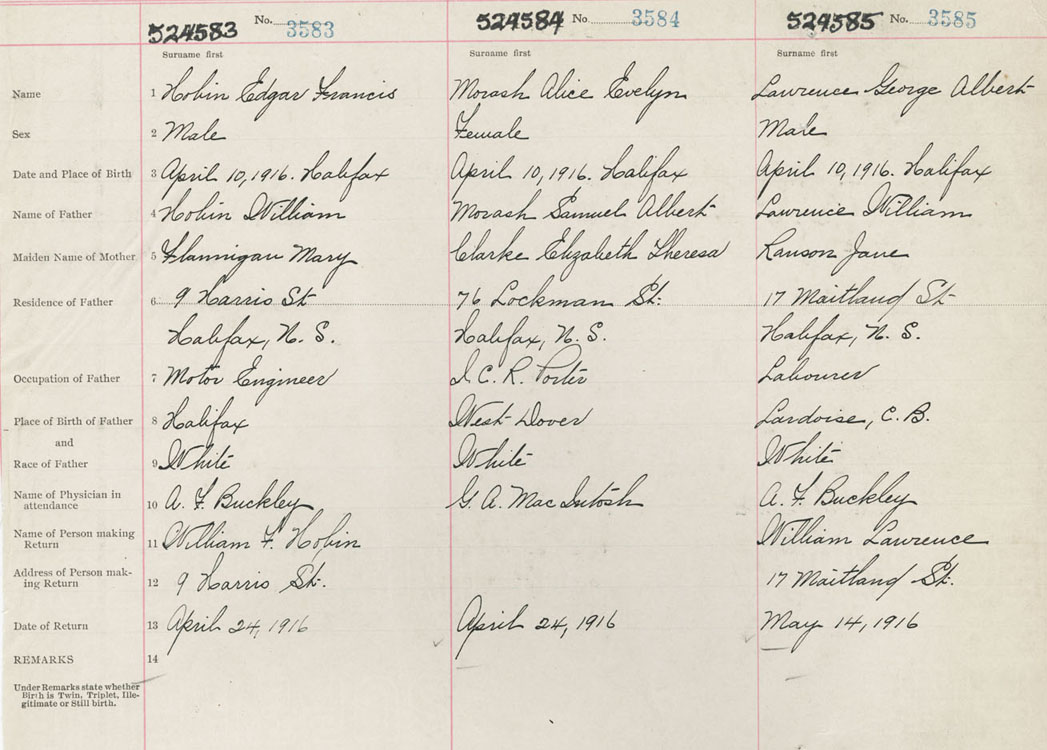 524583 No. 3583 524584 No. 3584 524585 No. 3585
Surname first Surname first Surname first
Name 1 Hobin Edgar Francis Morash Alice Evelyn Lawrence George Albert
Sex 2 Male Female Male
Date and Place of Birth 3 April 10, 1916. Halifax April 10, 1916. Halifax April 10, 1916. Halifax
Name of Father 4 Hobin William Morash Samuel Albert Lawrence William
Maiden Name of Mother 5 Flannigan Mary Clarke Elizabeth Theresa Ranson Jane
Residence of Father 6 9 Harris St 76 Lockman St. 17 Maitland St
Halifax, N. S. Halifax, N. S. Halifax, N. S.
Occupation of Father 7 Motor Engineer I. C. R. Porter Labourer
Place of Birth of Father 8 Halifax West Dover Lardoise, C. B.
and
Race of Father 9 White White White
Name of Physician in
attendance 10 A. F. Buckley G. A. MacIntosh A. F. Buckley
Name of Person making
Return 11 William F. Hobin William Lawrence
Address of Person mak-
ing Return 12 9 Harris St. 17 Maitland St.
Date of Return 13 April 24, 1916 April 24, 1916 May 14, 1916
REMARKS 14
Under Remarks state whether
Birth is Twin, Triplet, Ille-
gitimate or Still birth.